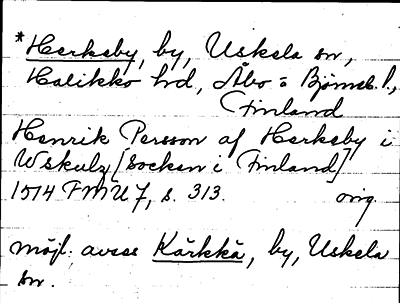 *Herkeby, by, Uskela sn,
Halikko hd, Åbo o Björneb. l.,
Finland
Henrik Persson af Herkeby i
Wskulz [socken i Finland]
1514 FMU 7, s. 313. orig.
möjl. avses Kärkkä, by, Uskela
sn.